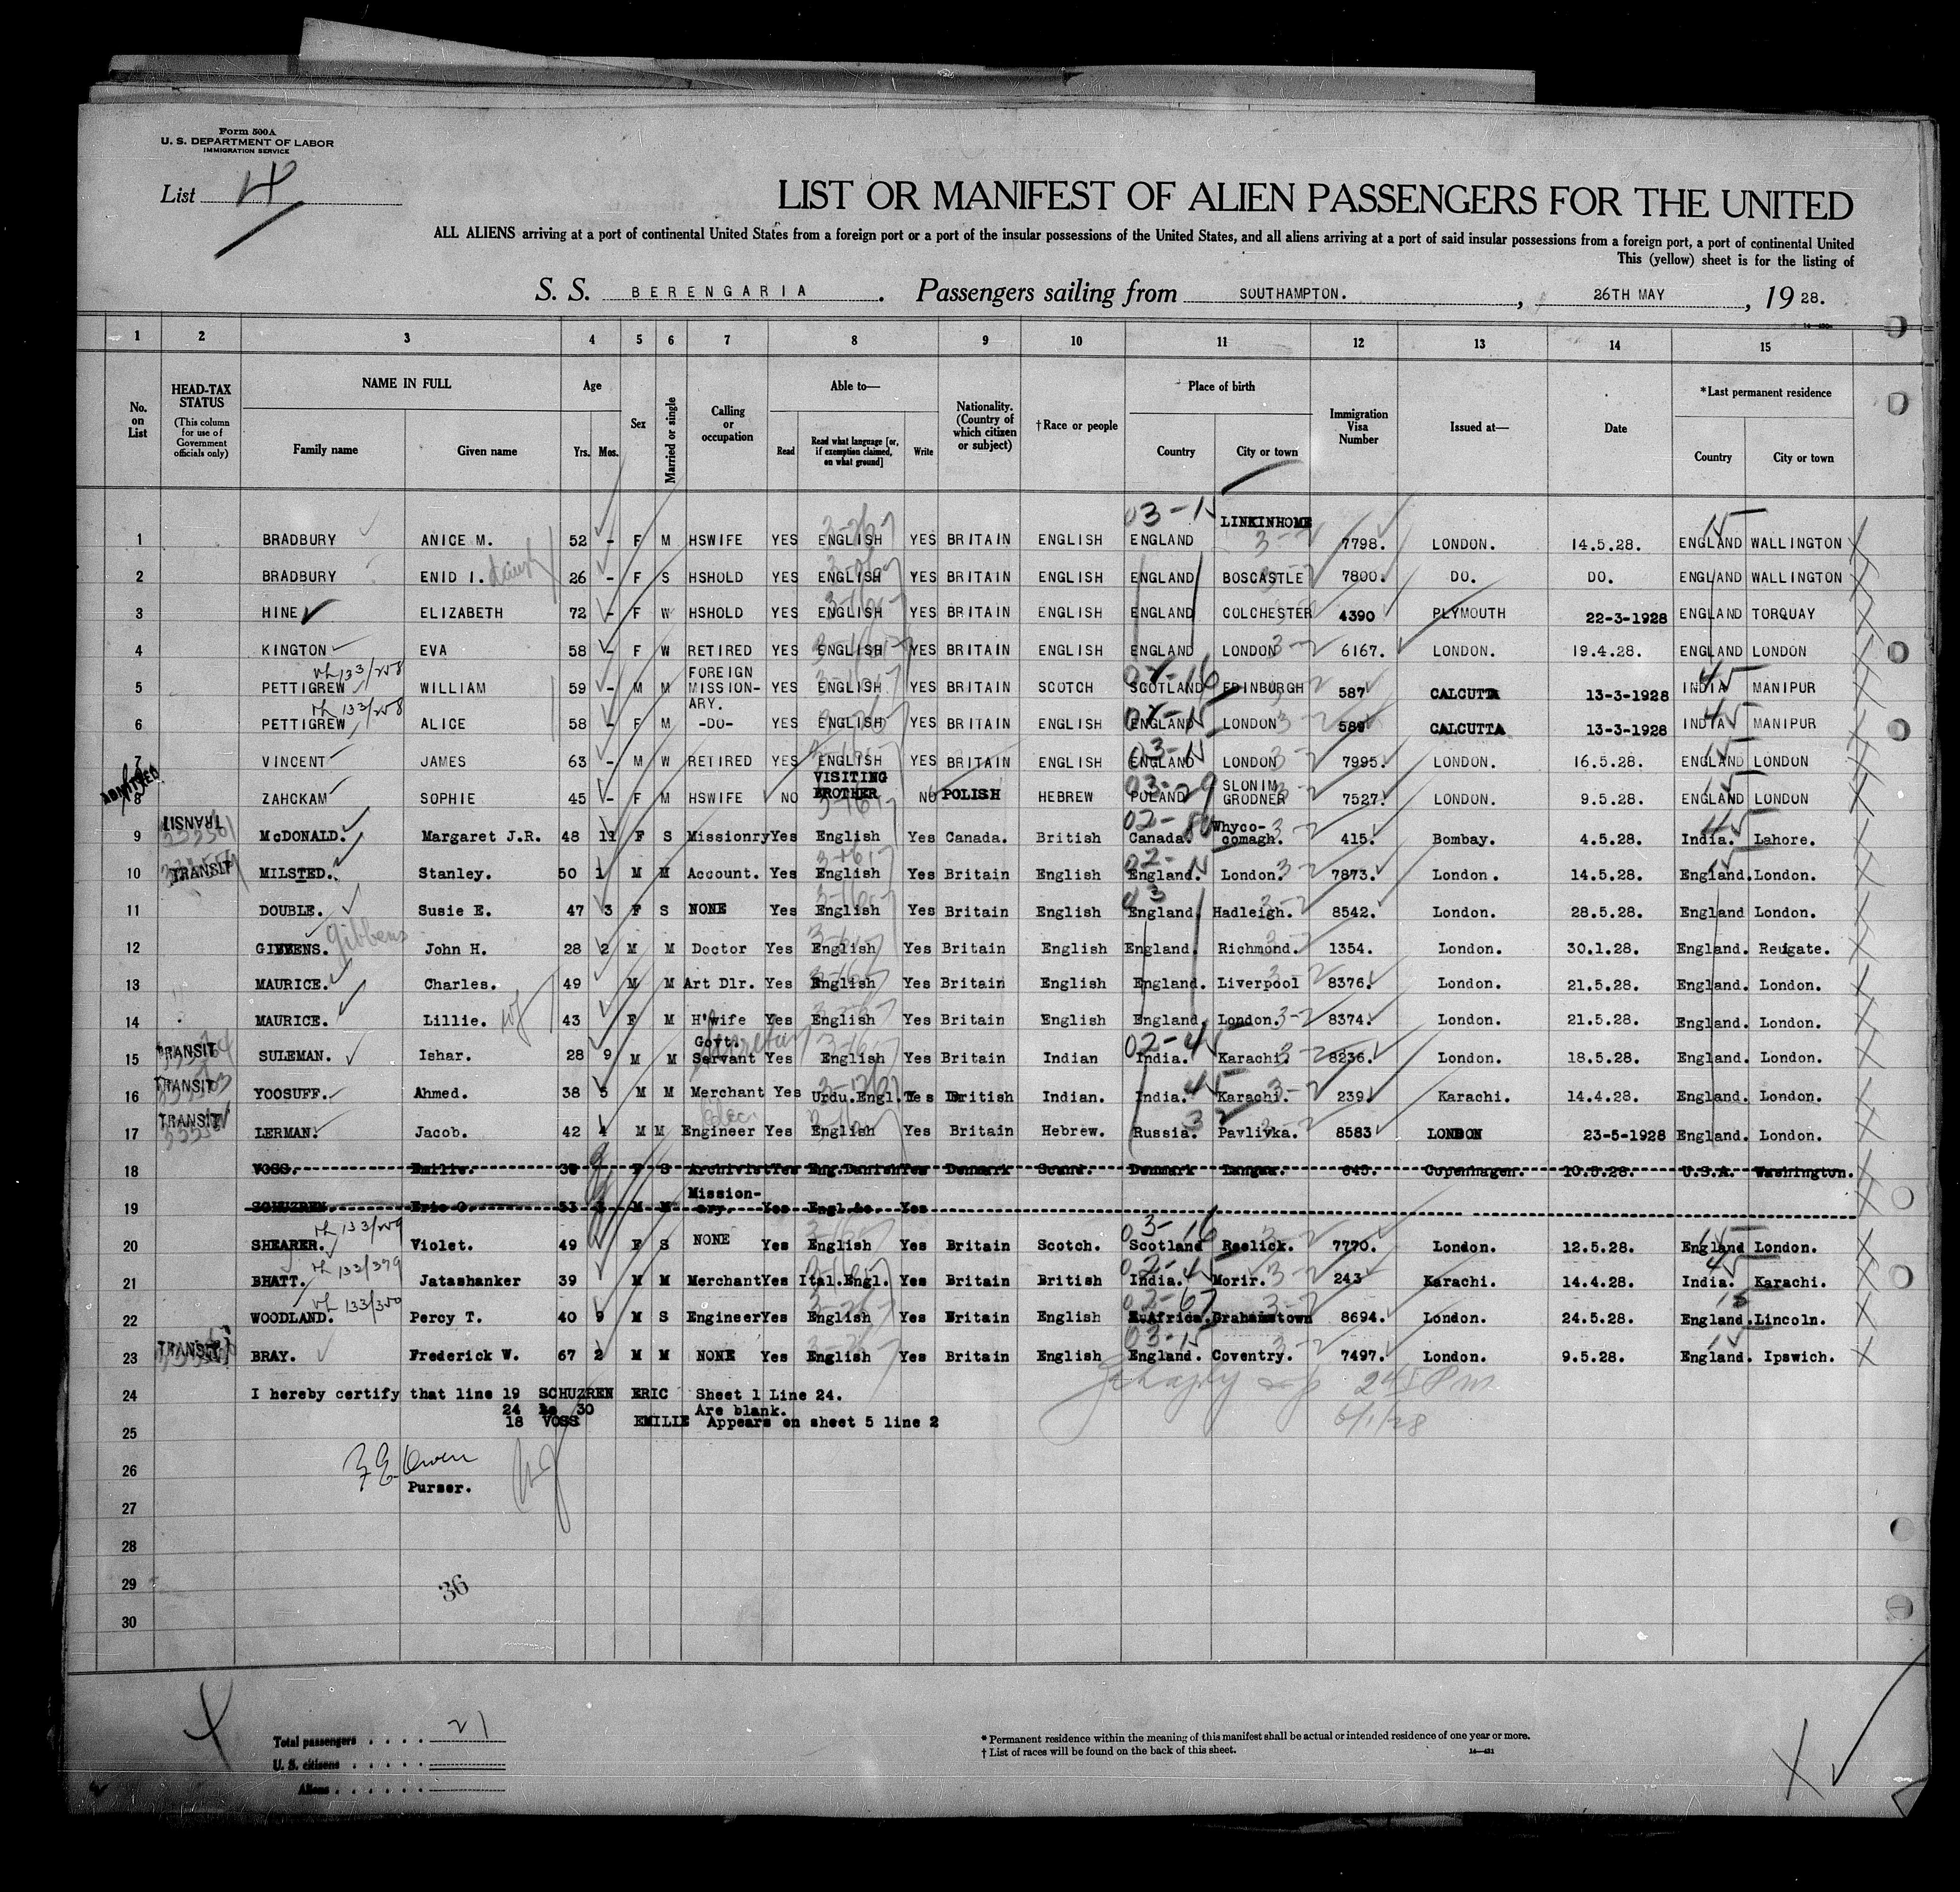 Form 500A
U. S. DEPARTMENT OF LABOR
IMMIGRATION SERVICE
List 4
LIST OR MANIFEST OF ALIEN PASSENGERS FOR THE UNITED
ALL ALIENS arriving at a port of continental United States from a foreign port or a port of the insular possessions of the United States, and all aliens arriving at a port of said insular possessions from a foreign port, a port of continental United
This (yellow) sheet is for the listing of
S. S. BERENGARIA. Passengers sailing from SOUTHAMPTON., 26TH MAY, 19 28.
1 2 3 4 5 6 7 8 9 10 11 12 13 14 15
No. on List
HEAD-TAX STATUS (This column for use of Government officials only)
NAME IN FULL
Family name Given name
Age
Yrs. Mos.
Sex
Married or single
Calling or occupation
Able to—
Read Read what language [or, if exemption claimed, on what ground] Write
Nationality. (Country of which citizen or subject)
†Race or people
Place of birth
Country City or town
Immigration Visa Number
Issued at—
Date
*Last permanent residence
Country City or town
1 BRADBURY ANICE M. 52 - F M HSWIFE YES ENGLISH YES BRITAIN ENGLISH ENGLAND LINKINHOME 7798. LONDON. 14.5.28. ENGLAND WALLINGTON
2 BRADBURY ENID I. 26 - F S HSHOLD YES ENGLISH YES BRITAIN ENGLISH ENGLAND BOSCASTLE 7800. DO. DO. ENGLAND WALLINGTON
3 HINE ELIZABETH 72 - F W HSHOLD YES ENGLISH YES BRITAIN ENGLISH ENGLAND COLCHESTER 4390 PLYMOUTH 22-3-1928 ENGLAND TORQUAY
4 KINGTON EVA 58 - F W RETIRED YES ENGLISH YES BRITAIN ENGLISH ENGLAND LONDON 6167. LONDON. 19.4.28. ENGLAND LONDON
5 PETTIGREW WILLIAM 59 - M M FOREIGN MISSION-ARY. YES ENGLISH YES BRITAIN SCOTCH SCOTLAND EDINBURGH 587 CALCUTTA 13-3-1928 INDIA MANIPUR
6 PETTIGREW ALICE 58 - F M -DO- YES ENGLISH YES BRITAIN ENGLISH ENGLAND LONDON 589 CALCUTTA 13-3-1928 INDIA MANIPUR
7 VINCENT JAMES 63 - M W RETIRED YES ENGLISH YES BRITAIN ENGLISH ENGLAND LONDON 7995. LONDON. 16.5.28. ENGLAND LONDON
ADMITTED
8 ZAHCKAM SOPHIE 45 - F M HSWIFE NO VISITING BROTHER NO POLISH HEBREW POLAND SLONIM GRODNER 7527. LONDON. 9.5.28. ENGLAND LONDON
9 TRANSIT McDONALD. Margaret J.R. 48 11 F S Missionry Yes English Yes Canada. British Canada. Whyco-comagh. 415. Bombay. 4.5.28. India. Lahore.
10 TRANSIT MILSTED. Stanley. 50 1 M M Account. Yes English Yes Britain English England. London. 7873. London. 14.5.28. England. London.
11 DOUBLE. Susie E. 47 3 F S NONE Yes English Yes Britain English England. Hadleigh. 8542. London. 28.5.28. England London.
12 Gibbens John H. 28 2 M M Doctor Yes English Yes Britain English England. Richmond. 1354. London. 30.1.28. England. Reigate.
13 MAURICE. Charles. 49 M M Art Dlr. Yes English Yes Britain English England. Liverpool 8376. London. 21.5.28. England. London.
14 MAURICE. Lillie. 43 F M H'wife Yes English Yes Britain English England. London. 8374. London. 21.5.28. England. London.
15 TRANSIT SULEMAN. Ishar. 28 9 M M Govt. Servant Yes English Yes Britain Indian India. Karachi. 8236. London. 18.5.28. England. London.
16 TRANSIT YOOSUFF. Ahmed. 38 5 M M Merchant Yes Urdu.Engl. Yes British Indian. India. Karachi. 239. Karachi. 14.4.28. England. London.
17 TRANSIT LERMAN. Jacob. 42 4 M M Engineer Yes English Yes Britain Hebrew. Russia. Pavlivka. 8583 LONDON 23-5-1928 England. London.
18 VOSS. Emilie. F S Archivist Yes Eng.Danish Yes Denmark Scand. Denmark Copenhagen. 10.5.28. U.S.A. Washington.
19 SCHUZREN. Eric O. 53 M M Mission-ary. Yes Yes
20 SHEARER. Violet. 49 F S NONE Yes English Yes Britain Scotch. Scotland Reelick. 7770. London. 12.5.28. England London.
21 BHATT. Jatashanker 39 M M Merchant Yes Ital.Engl. Yes Britain British India. Morir. 243 Karachi. 14.4.28. India. Karachi.
22 WOODLAND. Percy T. 40 9 M S Engineer Yes English Yes Britain English Africa. Grahamstown 8694. London. 24.5.28. England. Lincoln.
23 TRANSIT BRAY. Frederick W. 67 2 M M NONE Yes English Yes Britain English England. Coventry. 7497. London. 9.5.28. England. Ipswich.
24 I hereby certify that line 19 SCHUZREN ERIC Sheet 1 Line 24.
24 to 30 Are blank.
18 VOSS EMILIE Appears on sheet 5 line 2
25
6/1/28
26 Owen
Purser.
27
28
29 36
30
Total passengers . . . . 21
U. S. citizens . . . . .
Aliens . . . . . .
* Permanent residence within the meaning of this manifest shall be actual or intended residence of one year or more.
† List of races will be found on the back of this sheet.
14—431